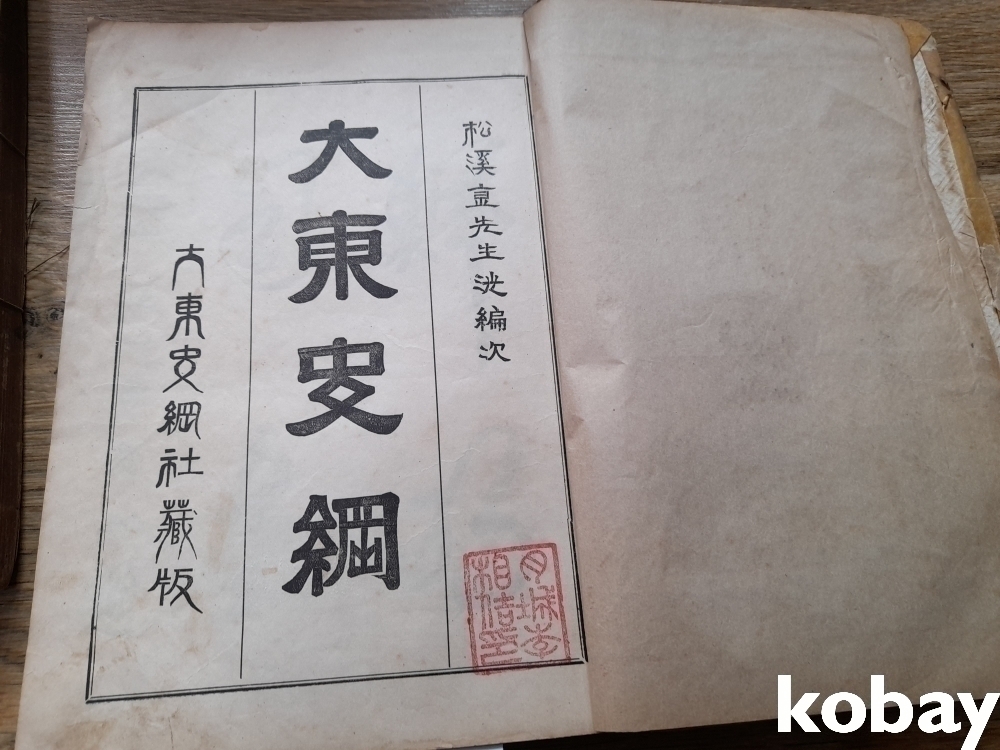 松溪金先生洸編次
大東史綱
大東史綱社藏版
月城李
相佶印
kobay